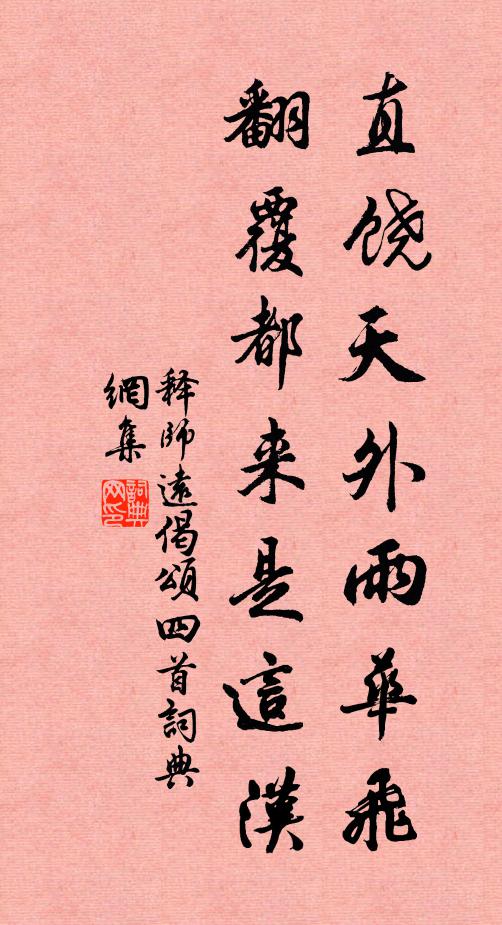 直饶天外雨華飛
翻覆都来是這漢
释師遠偈頌四首詞典
網集
詞典
网印